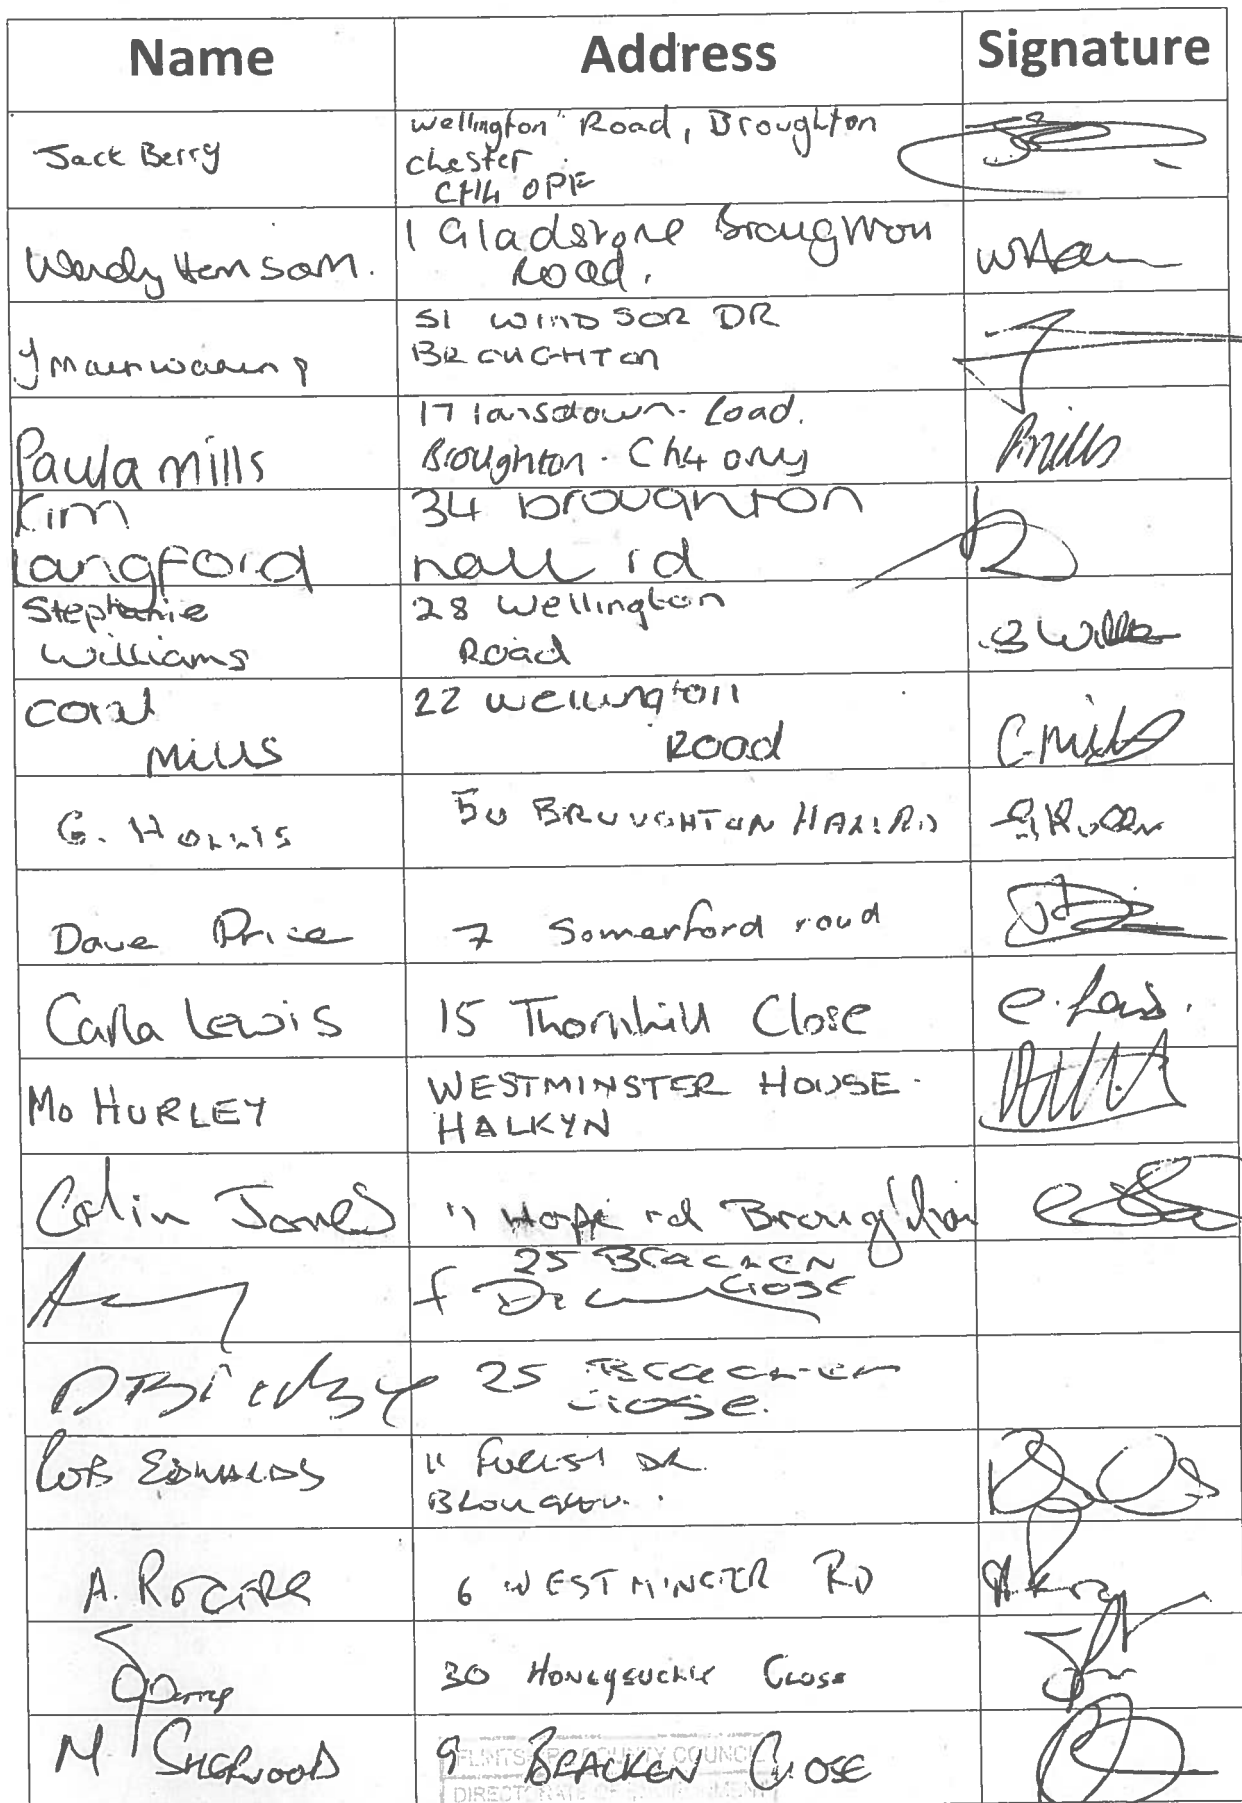 Name Address Signature
Jack Berry
Wellington Road, Broughton
Chester
CH4 0PF
Wendy Hansom.
1 Gladstone Broughton
Road.
J Mainwaring
51 WINDSOR DR
BROUGHTON
Paula Mills
17 lansdown. Road.
Broughton. CH4
P Mills
Kim
Langford
34 broughton
hall rd
Stephanie
Williams
28 Wellington
Road
S Will
Coral
Mills
22 Wellington
Road
C. Mills
G. HOLLIS
50 BROUGHTON HALL RD
G Hollis
Dave Price
7 Somerford road
Carla Lewis
15 Thornhill Close
C. Lewis.
MO HURLEY
WESTMINSTER HOUSE.
HALKYN
Colin Jones
11 Hope rd Broughton
25 Bracken
Close
25 Bracken
Close.
ROB EDWARDS
11 FOREST DR
BROUGHTON.
A. ROGERS
6 WESTMINSTER RD
30 HONEYSUCKLE CLOSE
M SHERWOOD
9 BRACKEN CLOSE
FLINTSHIRE COUNTY COUNCIL
DIRECTORATE OF ENVIRONMENT